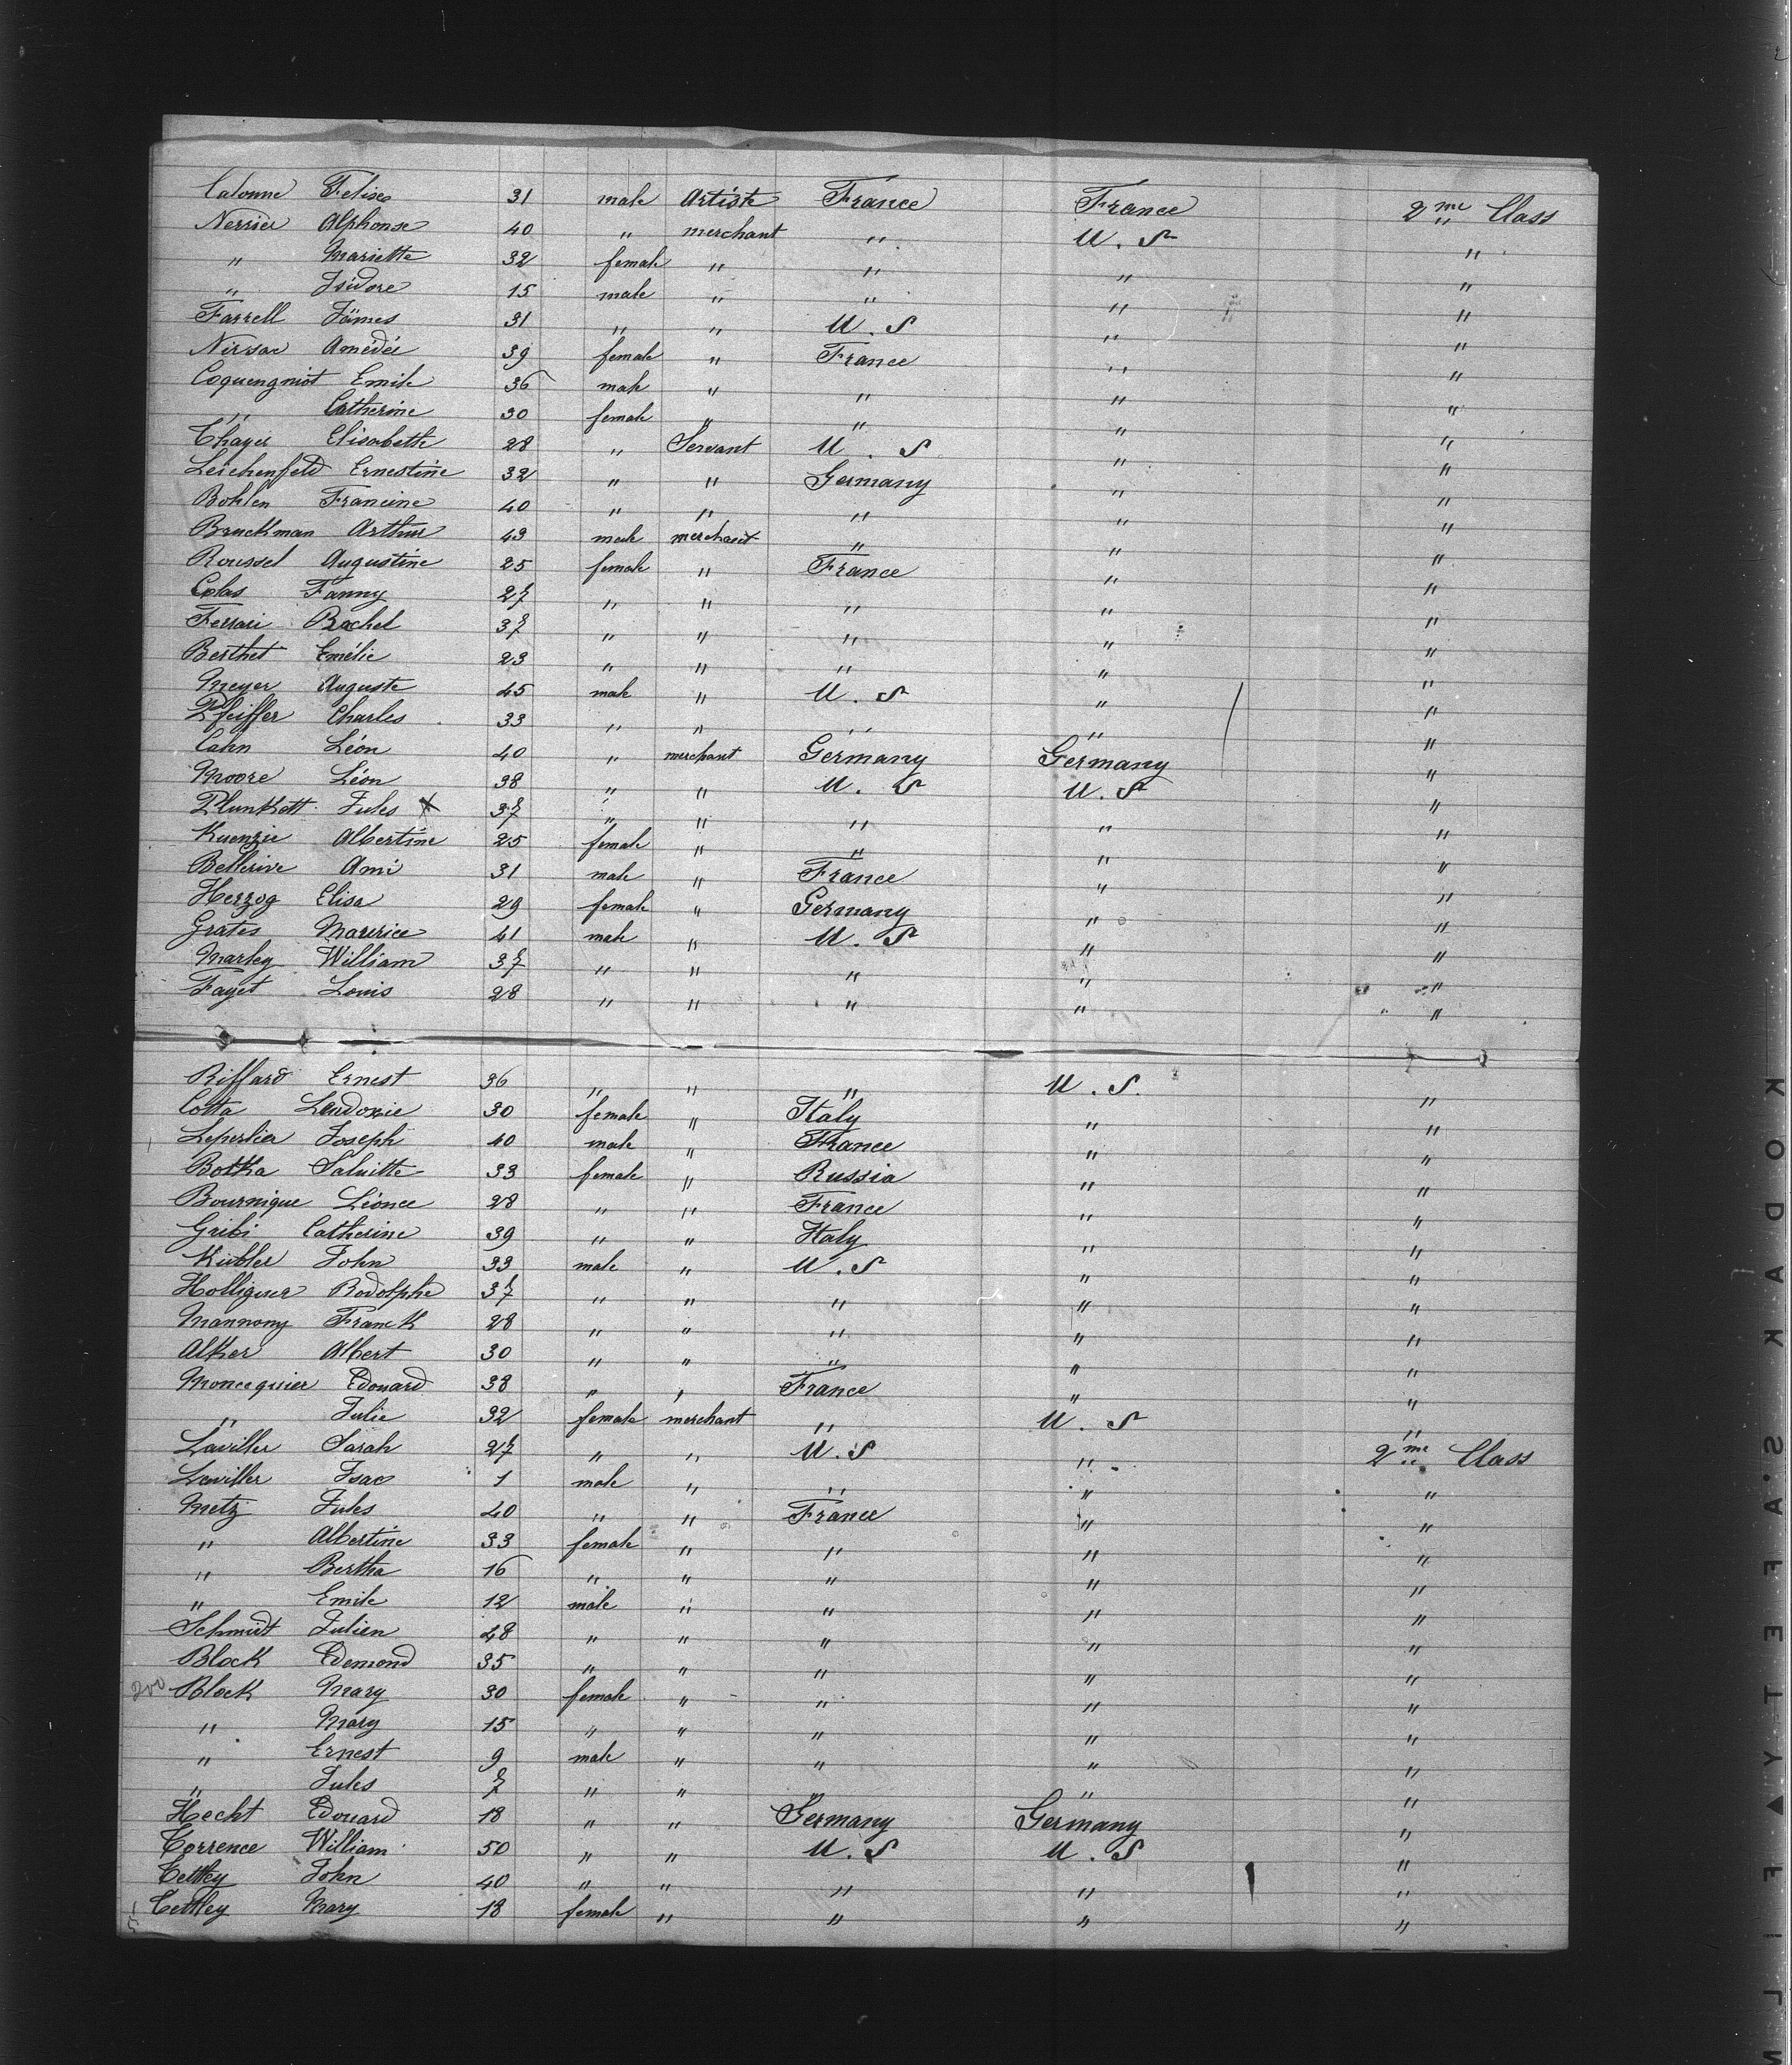 Calonne Felise 31 male Artiste France France 2me Class
Nerrier Alphonse 40 " merchant " U. S "
" Mariette 32 female " " " "
" Isidore 15 male " " " "
Farrell Jämes 31 " " U. S " "
Nirsac Amédée 39 female " France " "
Coquengniot Emile 36 male " " " "
" Catherine 30 female " " " "
Thayer Elisabeth 28 " Servant U. S " "
Leichenfeld Ernestine 32 " " Germany " "
Bohlen Francine 40 " " " " "
Bruckman Arthur 43 male merchant " " "
Roussel Augustine 25 female " France " "
Colas Fanny 27 " " " " "
Ferrari Rachel 37 " " " " "
Berthet Emélie 23 " " " " "
Meyer Auguste 45 male " U. S " "
Pfeiffer Charles 33 " " " " "
Cahn Léon 40 " merchant Germany Germany "
Moore Léon 38 " " U. S U. S "
Plunkett Jules X 37 " " " " "
Kuenzie Albertine 25 female " " " "
Bellerive Ami 31 male " France " "
Herzog Elisa 29 female " Germany " "
Grates Maurice 41 male " U. S " "
Marley William 37 " " " " "
Fayet Louis 28 " " " " "
Riffard Ernest 36 " " " U. S. "
Cotta Leudoxie 30 female " Italy " "
Leperlier Joseph 40 male " France " "
Botka Saluitte 33 female " Russia " "
Bournique Léonce 28 " " France " "
Gribi Catherine 39 " " Italy " "
Kubler John 33 male " U. S " "
Holliguer Rodolphe 37 " " " " "
Mannony Franck 28 " " " " "
Alker Albert 30 " " " " "
Moncequier Edouard 38 " " France " "
" Julie 32 female merchant " U. S "
Laviller Sarah 27 " " U. S " 2me Class
Laviller Isac 1 male " " " "
Metz Jules 40 " " France " "
" Albertine 33 female " " " "
" Bertha 16 " " " " "
" Emile 12 male " " " "
Schmidt Julien 48 " " " " "
Block Edemond 35 " " " " "
200 Block Mary 30 female " " " "
" Mary 15 " " " " "
" Ernest 9 male " " " "
" Jules 7 " " " " "
Hecht Edouard 18 " " Germany Germany "
Torrence William 50 " " U. S U. S "
Tettley John 40 " " " " "
Tettley Mary 18 female " " " "
KODAK SAFETY FILM